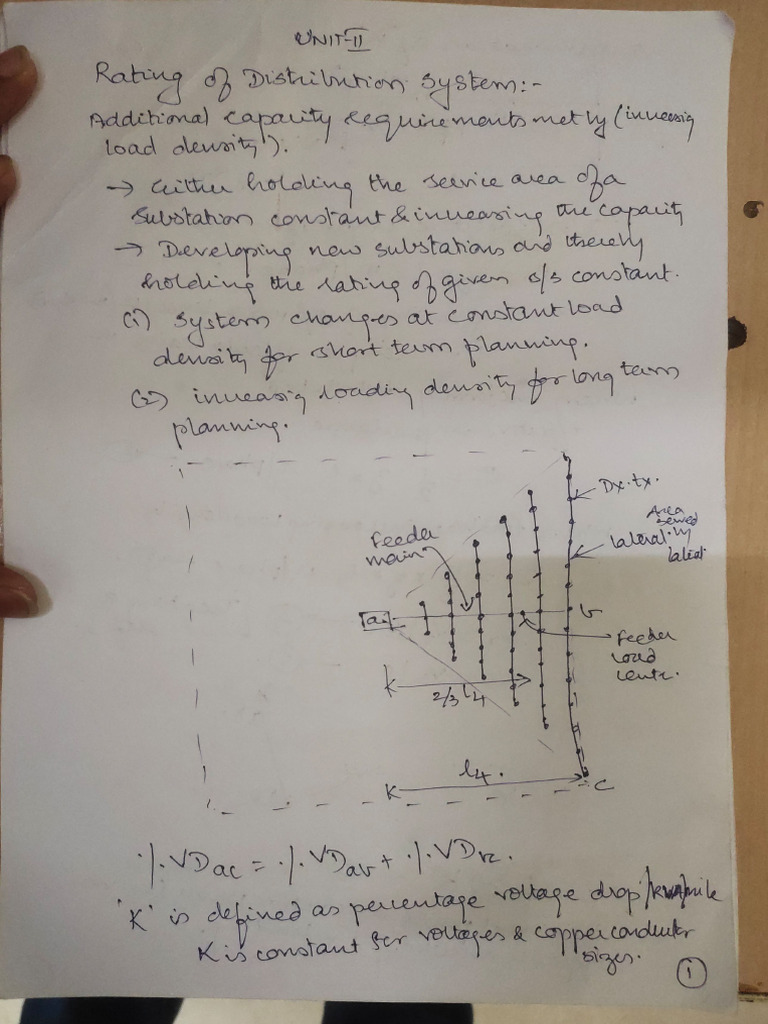 UNIT-II
Rating of Distribution System:-
Additional capacity requirements met by (increasing
load density).
→ Either holding the service area of a
substation constant & increasing the capacity
→ Developing new substations and thereby
holding the rating of given s/s constant.
(1) System changes at constant load
density for short term planning.
(2) increasing loading density for long term
planning.
Dx. tx.
Area
served
by
lateral.
lateral
feeder
main
a
b
Feeder
load
centr.
2/3 l4
l4.
c
%VDac = %VDab + %VDbc.
'K' is defined as percentage voltage drop/kva/mile
K is constant for voltages & copper conductor
sizes.
1